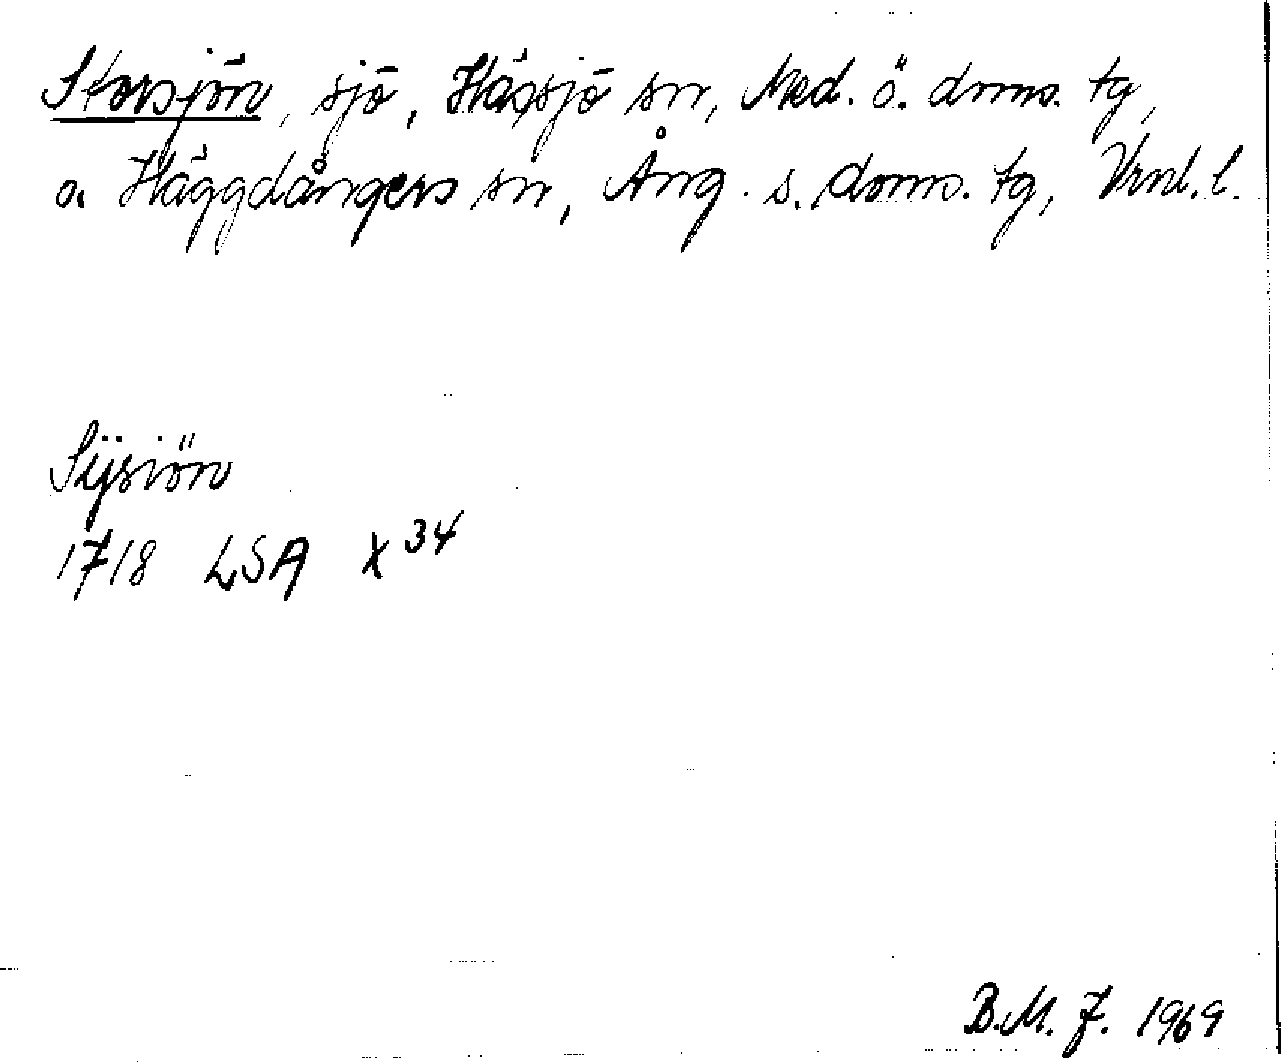 Storsjön, sjö, Hässjö sn, Med. ö. doms. tg,
o. Häggdångers sn, Ång. s. doms. tg, Vrnl. l.
Sÿsiön
1718 LSA X 34
B.M.J. 1969